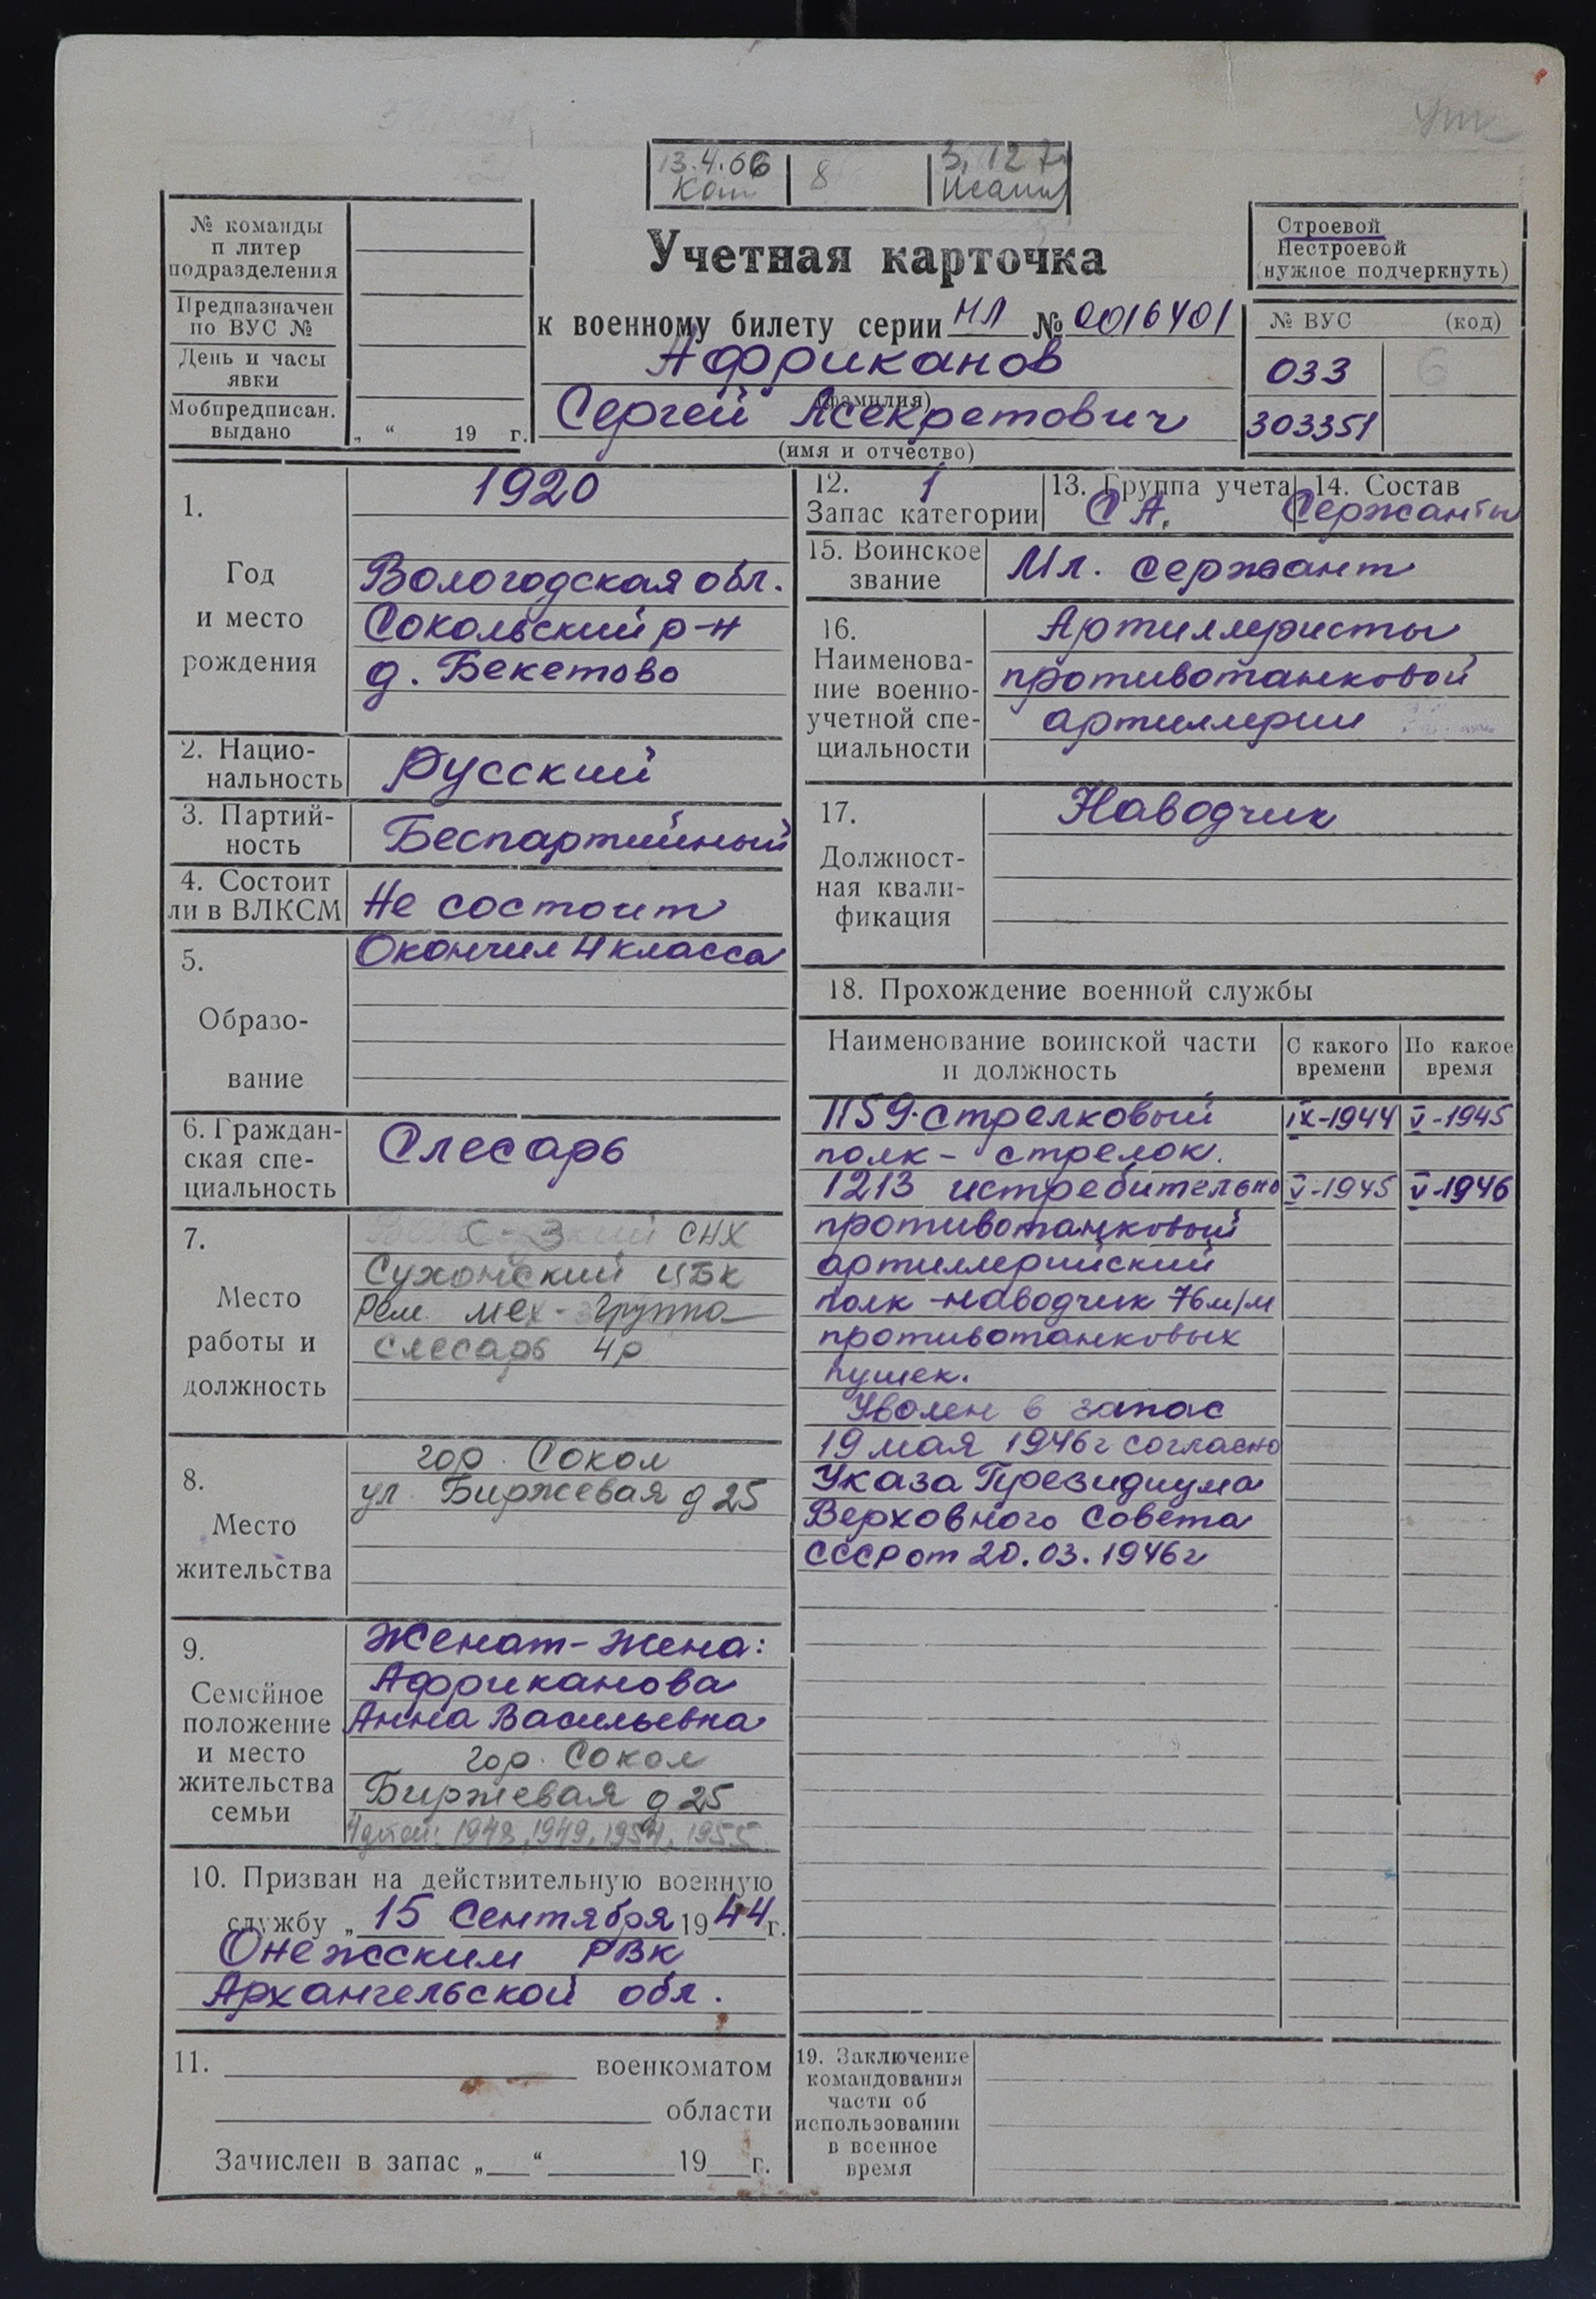 13.4.66
8
3.12.7
№ команды
п литер
подразделения
Предназначен
по ВУС №
День и часы
явки
Мобпредписан.
выдано
„ “ 19 г.
Учетная карточка
к военному билету серии НЛ № 0016401
Африканов
(фамилия)
Сергей Асекретович
(имя и отчество)
Строевой
Нестроевой
(нужное подчеркнуть)
№ ВУС (код)
033 6
303351
1.
Год
и место
рождения
1920
Вологодская обл.
Сокольский р-н
д. Бекетово
2. Нацио-
нальность
Русский
3. Партий-
ность
Беспартийный
4. Состоит
ли в ВЛКСМ
Не состоит
5.
Образо-
вание
Окончил 4 класса
6. Граждан-
ская спе-
циальность
Слесарь
7.
Место
работы и
должность
С-З СНХ
Сухонский ЦБК
Рем. мех-группа
слесарь 4р
8.
Место
жительства
гор. Сокол
ул. Биржевая д 25
9.
Семейное
положение
и место
жительства
семьи
Женат-жена:
Африканова
Анна Васильевна
гор. Сокол
Биржевая д 25
4 детей: 1948, 1949, 1954, 1955
10. Призван на действительную военную
службу „ 15 Сентября 1944 г.
Онежским РВК
Архангельской обл.
11. военкоматом
области
Зачислен в запас „ “ 19 г.
12. 1
Запас категории
13. Группа учета
СА.
14. Состав
Сержанты
15. Воинское
звание
Мл. сержант
16.
Наименова-
ние военно-
учетной спе-
циальности
Артиллеристы
противотанковой
артиллерии
17.
Должност-
ная квали-
фикация
Наводчик
18. Прохождение военной службы
Наименование воинской части
и должность
С какого
времени
По какое
время
1159 стрелковый IX-1944 V-1945
полк - стрелок.
1213 истребительно V-1945 V-1946
противотанковый
артиллерийский
полк -наводчик 76м/м
противотанковых
пушек.
Уволен в запас
19 мая 1946г согласно
Указа Президиума
Верховного Совета
СССР от 20.03.1946г
19. Заключение
командования
части об
использовании
в военное
время